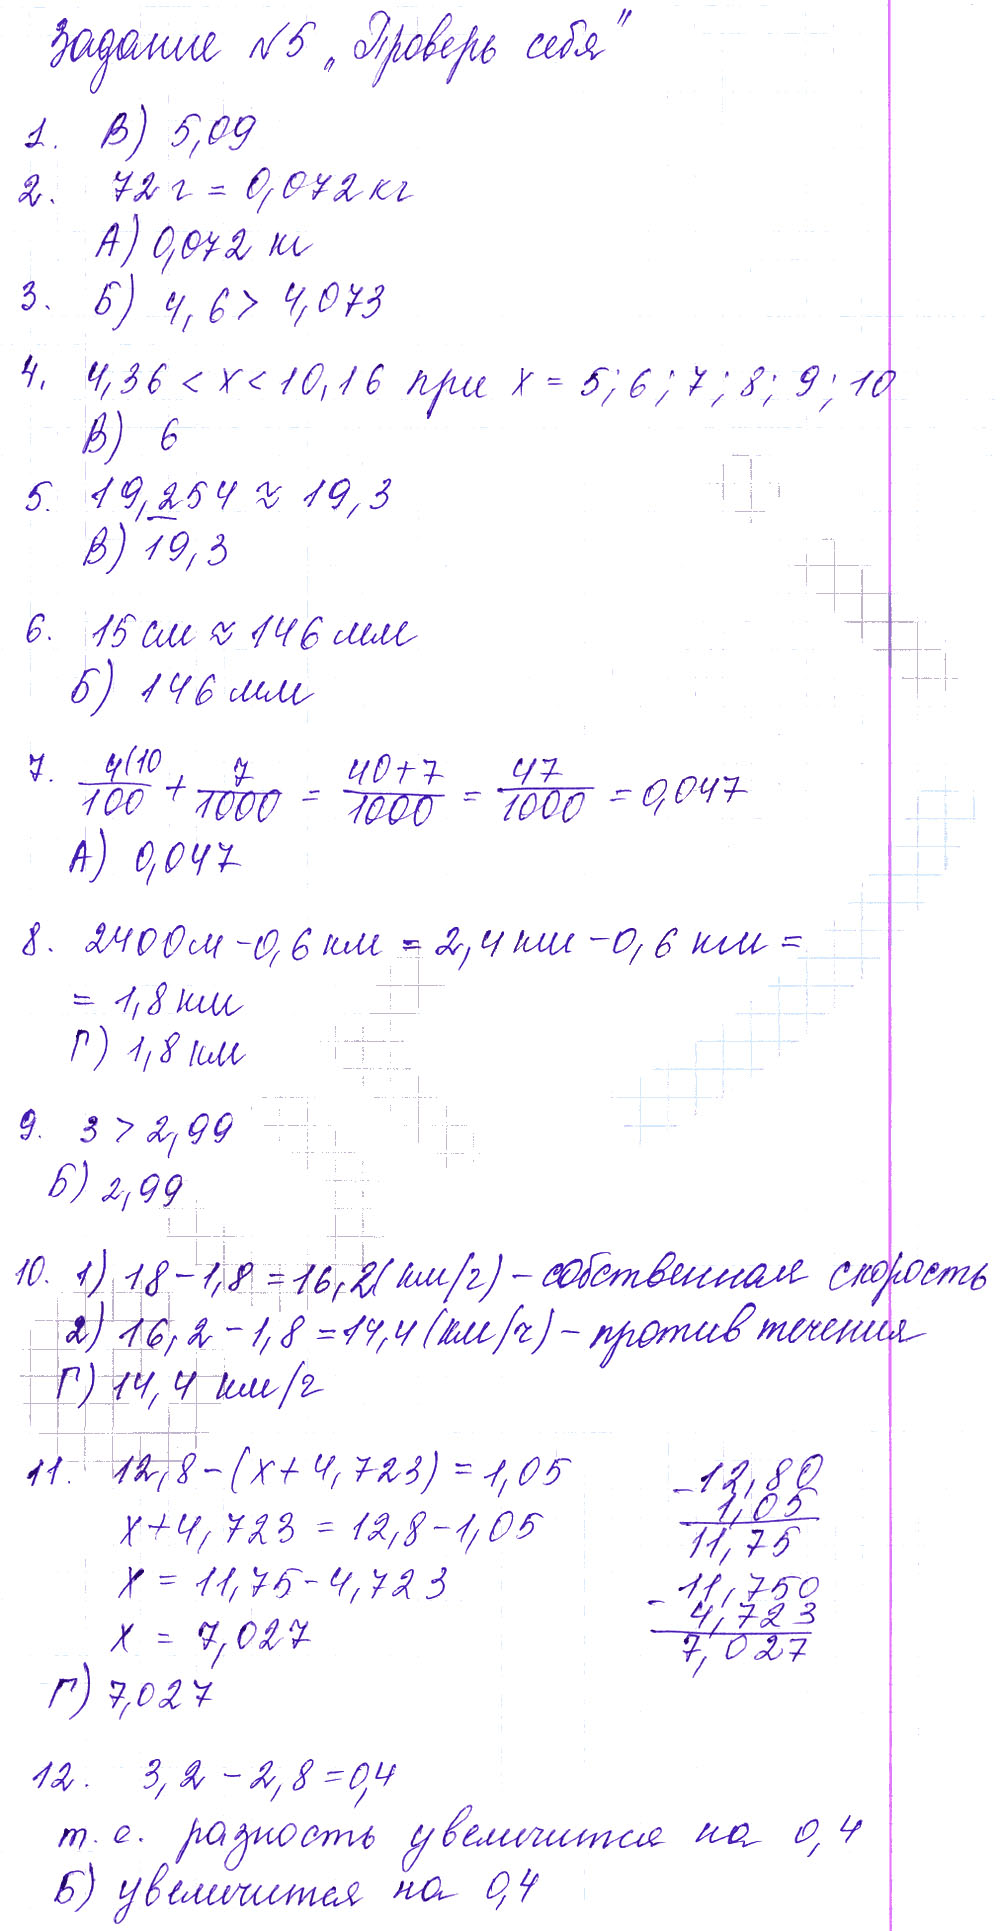 Задание №5 „Проверь себя"
1. В) 5,09
2. 72 г = 0,072 кг
А) 0,072 кг
3. Б) 4,6 > 4,073
4. 4,36 < x < 10,16 при x = 5; 6; 7; 8; 9; 10
В) 6
5. 19,254 ≈ 19,3
В) 19,3
6. 15 см ≈ 146 мм
Б) 146 мм
7. 4(10/100 + 7/1000 = 40+7/1000 = 47/1000 = 0,047
А) 0,047
8. 2400 м - 0,6 км = 2,4 км - 0,6 км =
= 1,8 км
Г) 1,8 км
9. 3 > 2,99
Б) 2,99
10. 1) 18 - 1,8 = 16,2 (км/ч) - собственная скорость
2) 16,2 - 1,8 = 14,4 (км/ч) - против течения
Г) 14,4 км/ч
11. 12,8 - (x + 4,723) = 1,05
x + 4,723 = 12,8 - 1,05
x = 11,75 - 4,723
x = 7,027
Г) 7,027
- 12,80
1,05
11,75
- 11,750
4,723
7,027
12. 3,2 - 2,8 = 0,4
т. е. разность увеличится на 0,4
Б) увеличится на 0,4